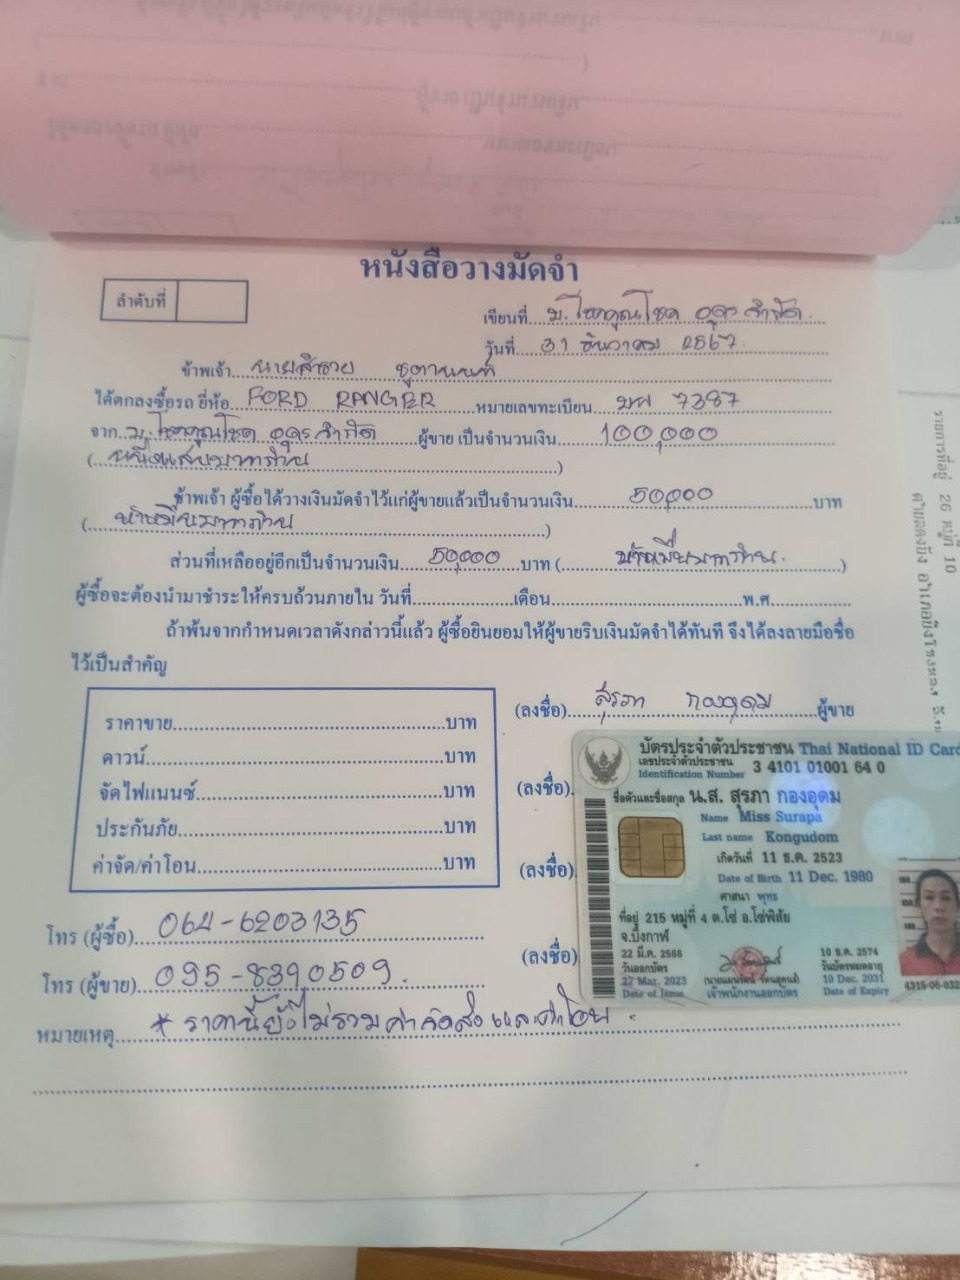 หนังสือวางมัดจำ
ลำดับที่
เขียนที่ บ.โชคคูณโชค อุดร จำกัด
วันที่ 31 ธันวาคม 2567
ข้าพเจ้า นายสำรวย
ได้ตกลงซื้อรถ ยี่ห้อ FORD RANGER หมายเลขทะเบียน 7387
จาก บ.โชคคูณโชค อุดร จำกัด ผู้ขาย เป็นจำนวนเงิน 100,000
(หนึ่งแสนบาทถ้วน)
ข้าพเจ้า ผู้ซื้อได้วางเงินมัดจำไว้แก่ผู้ขายแล้วเป็นจำนวนเงิน 50,000 บาท
(ห้าหมื่นบาทถ้วน)
ส่วนที่เหลืออยู่อีกเป็นจำนวนเงิน 50,000 บาท (ห้าหมื่นบาทถ้วน)
ผู้ซื้อจะต้องนำมาชำระให้ครบถ้วนภายใน วันที่ เดือน พ.ศ
ถ้าพ้นจากกำหนดเวลาดังกล่าวนี้แล้ว ผู้ซื้อยินยอมให้ผู้ขายริบเงินมัดจำได้ทันที จึงได้ลงลายมือชื่อ
ไว้เป็นสำคัญ
(ลงชื่อ) สุรภา กองอุดม ผู้ขาย
ราคาขาย บาท
ดาวน์ บาท
จัดไฟแนนซ์ บาท
ประกันภัย บาท
ค่าจัด/ค่าโอน บาท
(ลงชื่อ)
(ลงชื่อ)
(ลงชื่อ)
โทร (ผู้ซื้อ) 064-6203135
โทร (ผู้ขาย) 095-8390509
หมายเหตุ * ราคานี้ยังไม่รวมค่าจัดส่งและค่าโอน
บัตรประจำตัวประชาชน Thai National ID Card
เลขประจำตัวประชาชน 3 4101 01001 64 0
Identification Number
ชื่อตัวและชื่อสกุล น.ส. สุรภา กองอุดม
Name Miss Surapa
Last name Kongudom
เกิดวันที่ 11 ธ.ค. 2523
Date of Birth 11 Dec. 1980
ศาสนา พุทธ
ที่อยู่ 215 หมู่ที่ 4 ต.โซ่ อ.โซ่พิสัย
จ.บึงกาฬ
22 มี.ค. 2566
วันออกบัตร
22 Mar. 2023
Date of Issue
เจ้าพนักงานออกบัตร
10 ธ.ค. 2574
วันบัตรหมดอายุ
10 Dec. 2031
Date of Expiry
รายการที่อยู่ 26 หมู่ที่ 10